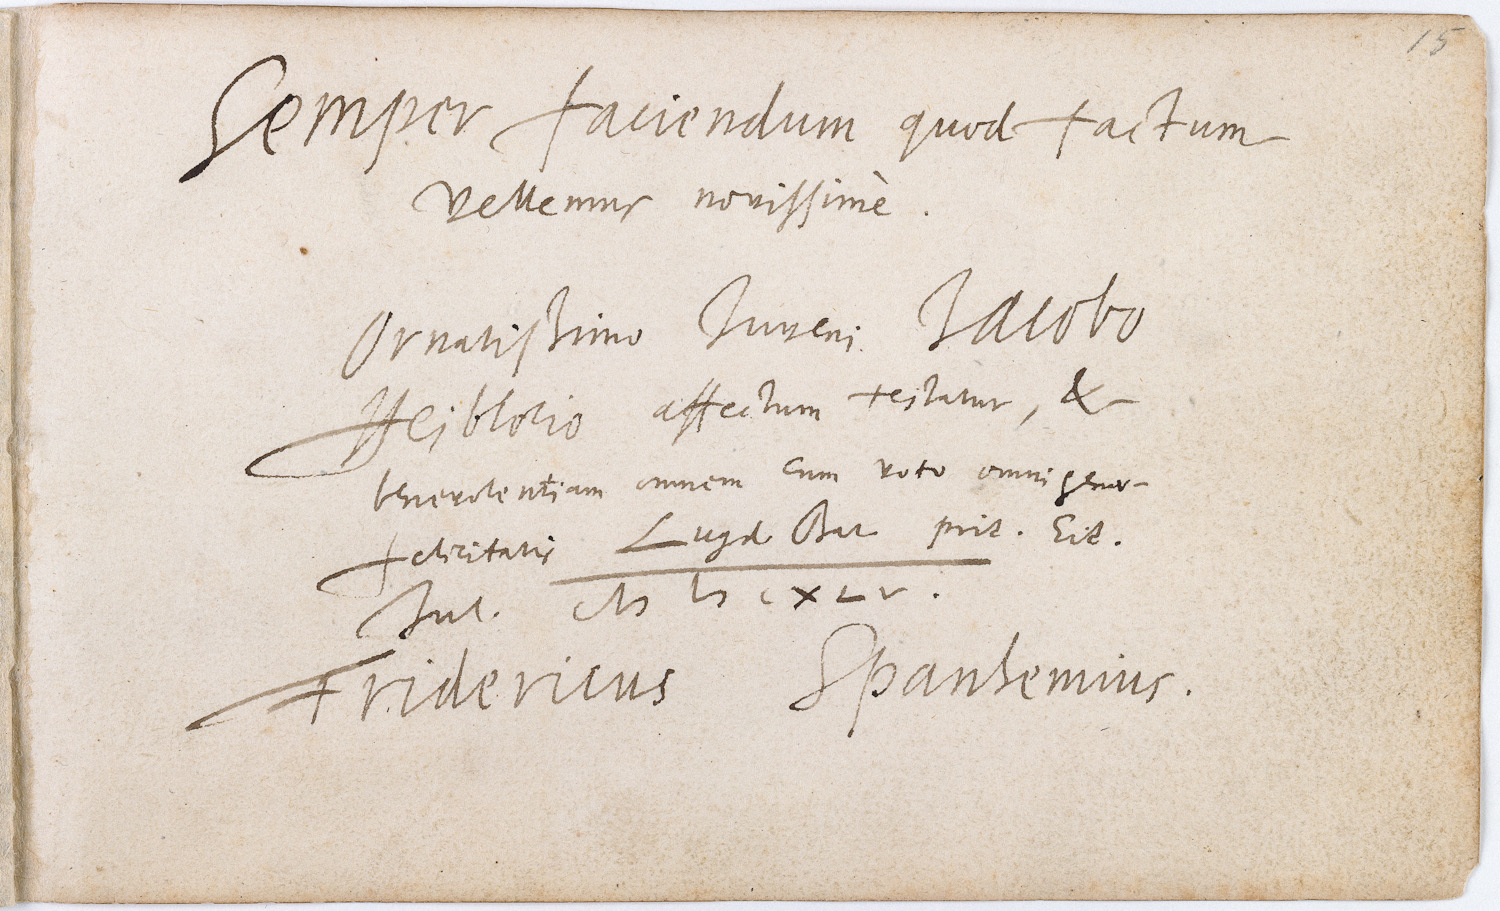 15
Semper faciendum quod factum
vellemus novissimè.
Ornatissimo Juveni Jacobo
Heiblocio affectum testatur, &
benevolentiam omnem cum voto omnigenæ
felicitatis Lugd Bat prid. Eid.
Jul. cIɔ Iɔ cXLV.
Fridericus Spanhemius.